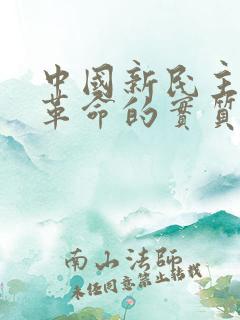 中國新民主
革命的實質
南山法師
未经同意禁止转载